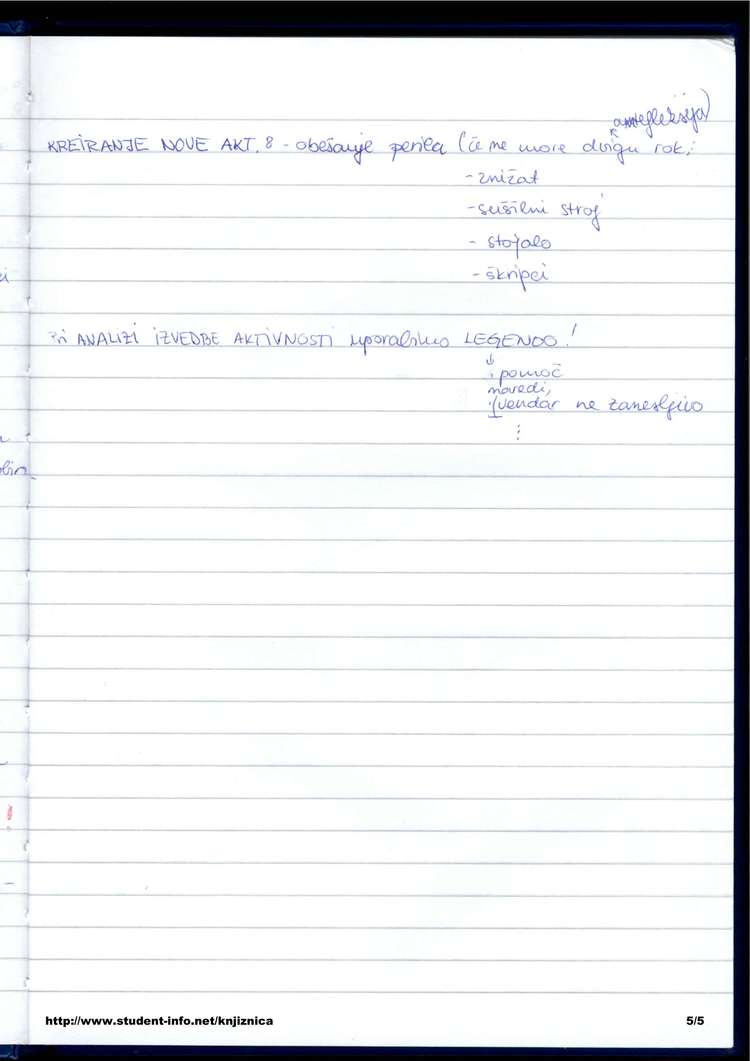 antefleksija)
KREIRANJE NOVE AKT. 8 - obešanje perila (če ne more dvigu rok;
- znižat
- sušilni stroj
- stojalo
- škripci
Pri ANALIZI IZVEDBE AKTIVNOSTI uporabimo LEGENDO!
↓
· pomoč
navedi,
(vendar ne zanesljivo
⋮
http://www.student-info.net/knjiznica
5/5